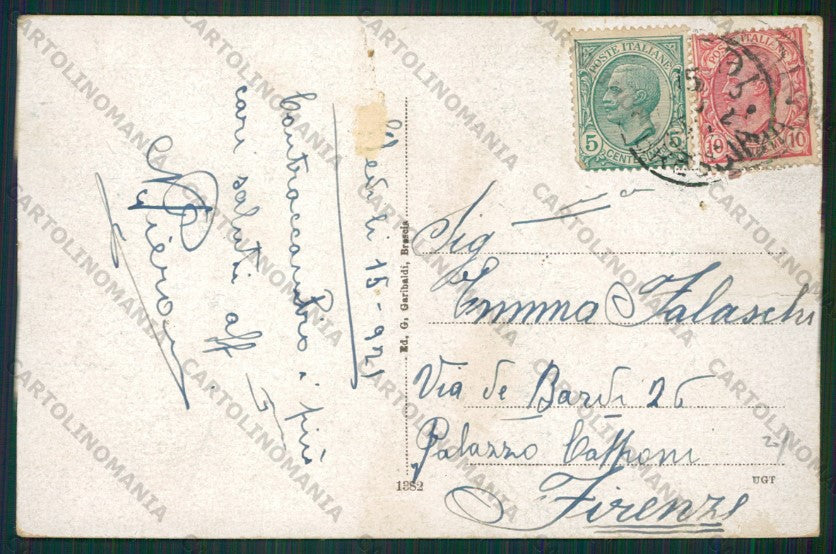 li 15-921
Contraccambio i più
cari saluti aff
Piero
Ed. G. Garibaldi, Brescia
1382
UGT
POSTE ITALIANE
5
CENTE
POSTE ITAL
10
10
Sig
Emma Falaschi
Via de Bardi 26
Palazzo Capponi
Firenze
CARTOLINOMANIA